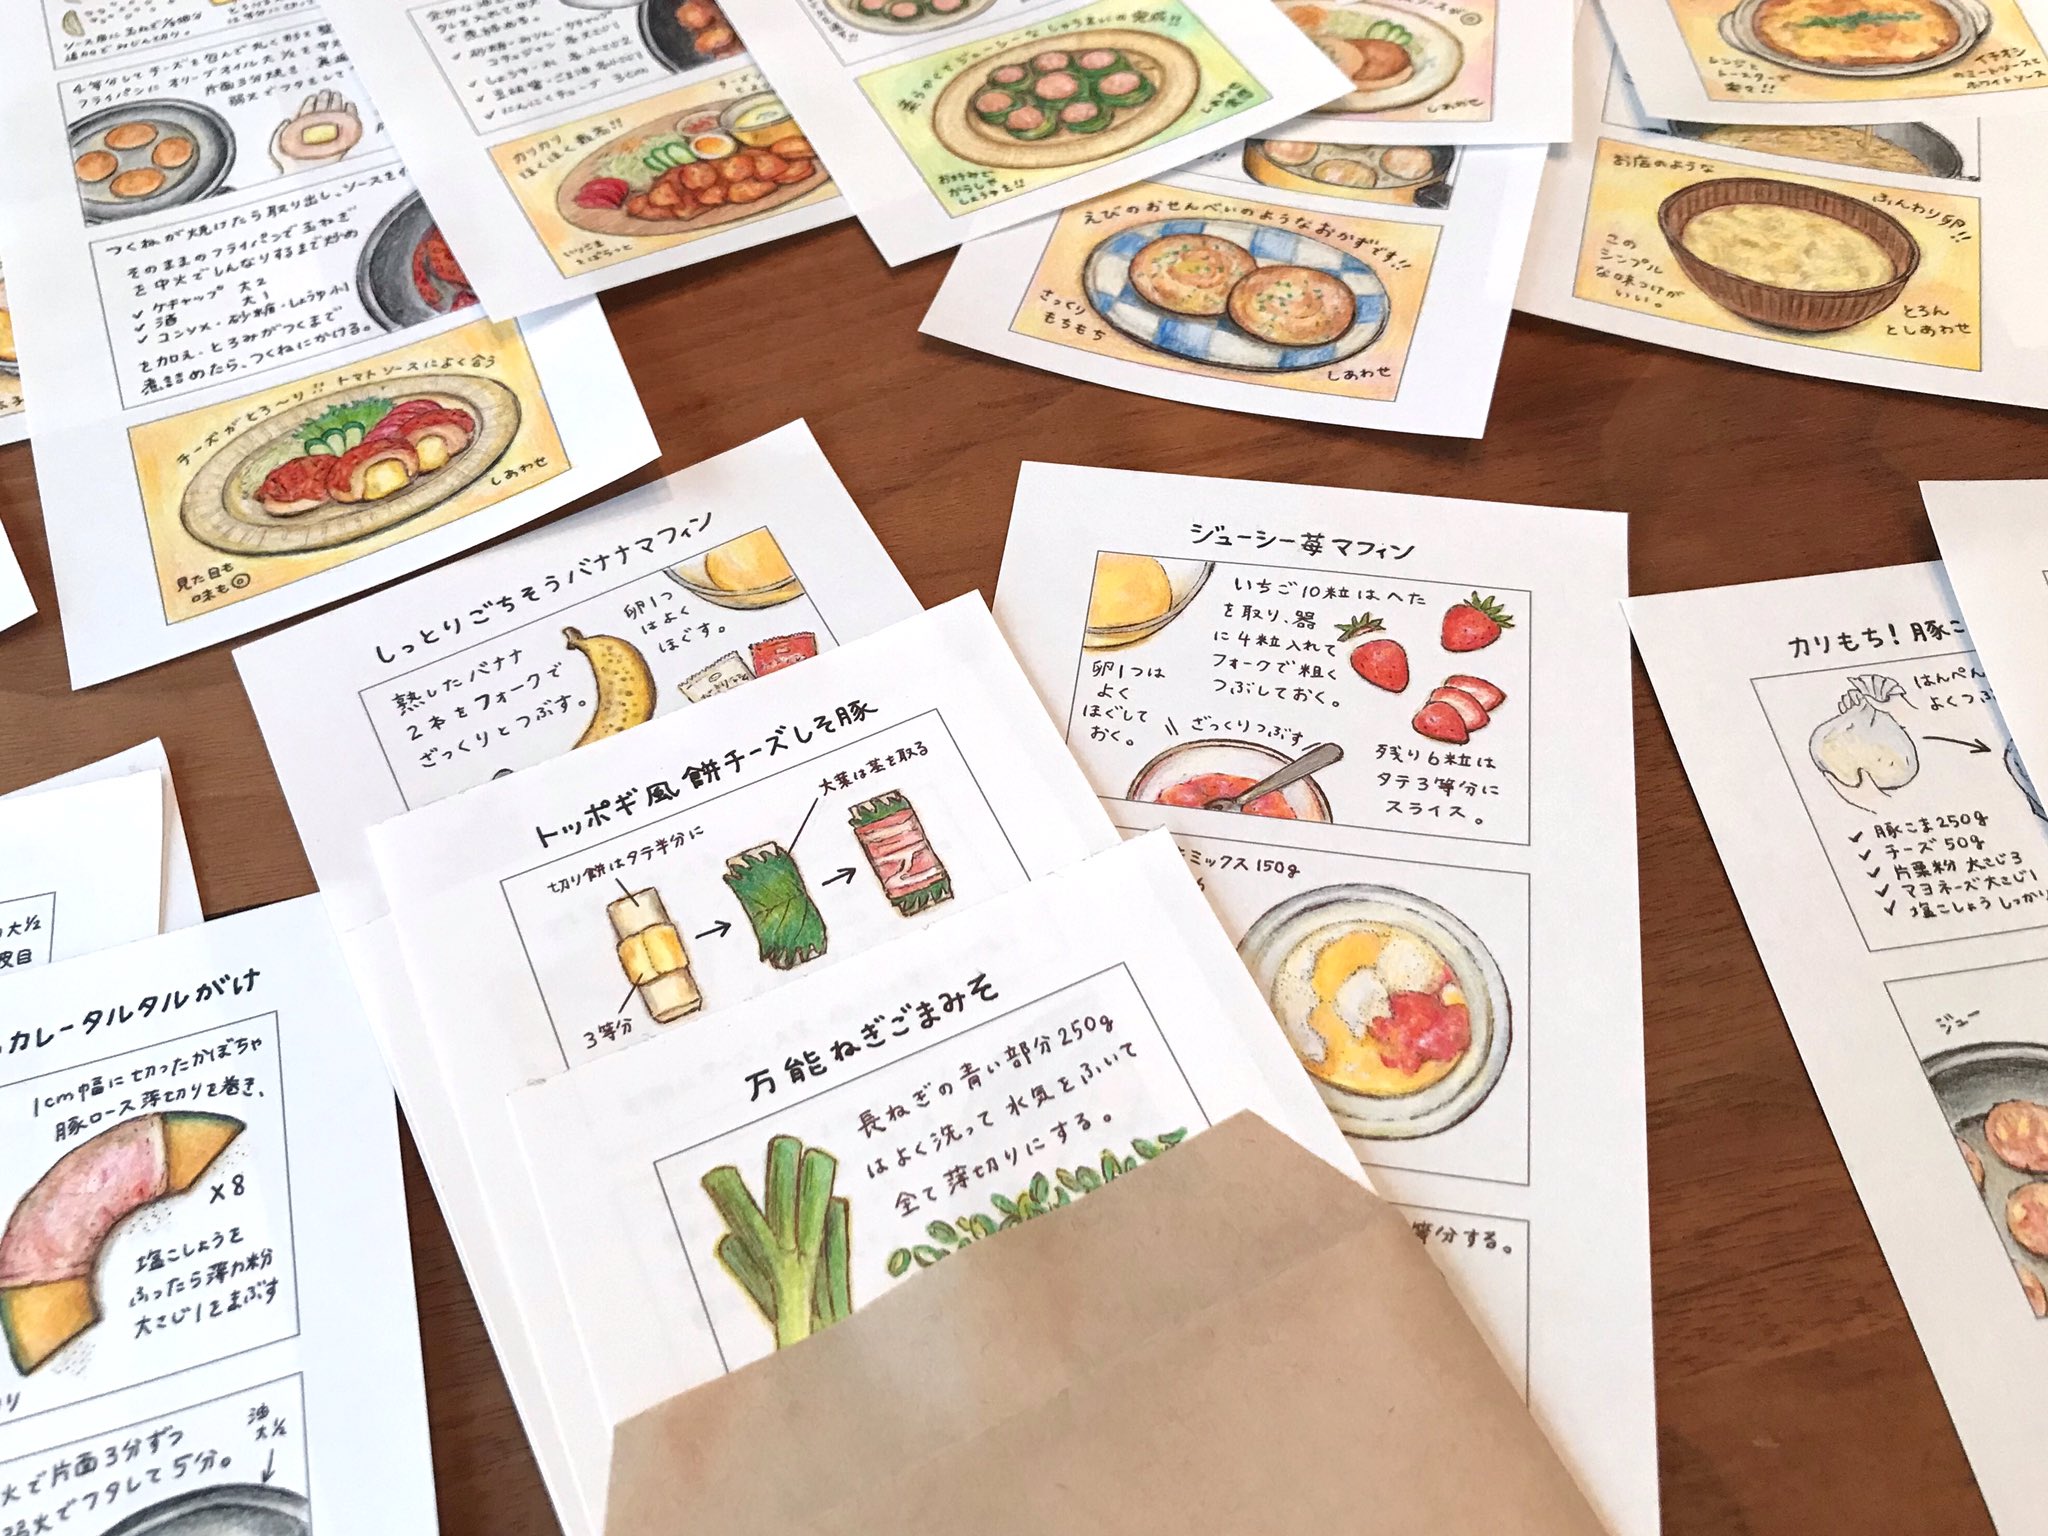 4等分してチーズを包んで丸く形を整
フライパンにオリーブオイル大½を
片面3分焼き
弱火でフタをして
つくねが焼けたら取り出し、ソースを
そのままのフライパンで玉ねぎ
を中火でしんなりするまで炒め
✓ ケチャップ 大2
✓ 酒 大1
✓ コンソメ・砂糖・しょうゆ 小1
を加え、とろみがつくまで
煮詰めたら、つくねにかける。
チーズがとろ〜り!! トマトソースによく合う
しあわせ
見た目も
味も◎
カリカリ
ほくほく最高!!
柔らかくてジューシーなしゅうまいの完成!!
お好みで
からしや
しょうゆを!!
しあわせ
えびのおせんべいのようなおかずです!!
さっくり
もちもち
しあわせ
レンジと
トースターで
楽々!!
イチオシ
のミートソースと
ホワイトソース
お店のような
ふんわり卵!!
この
シンプル
な味つけが
いい。
とろん
としあわせ
しっとりごちそうバナナマフィン
熟したバナナ
2本をフォークで
ざっくりとつぶす。
卵1つ
はよく
ほぐす。
ジューシー苺マフィン
いちご10粒はへた
を取り、器
に4粒入れて
フォークで粗く
つぶしておく。
卵1つは
よく
ほぐして
おく。
ざっくりつぶす
残り6粒は
タテ3等分に
スライス。
ミックス 150g
等分する。
トッポギ風餅チーズしそ豚
切り餅はタテ半分に
大葉は茎を取る
3等分
万能ねぎごまみそ
長ねぎの青い部分250g
はよく洗って水気をふいて
全て薄切りにする。
カリもち!豚こ
はんぺん
よくつぶ
✓ 豚こま250g
✓ チーズ 50g
✓ 片栗粉 大さじ3
✓ マヨネーズ大さじ1
✓ 塩こしょうしっかり
ジュー
カレータルタルがけ
1cm幅に切ったかぼちゃ
豚ロース薄切りを巻き、
×8
塩こしょうを
ふったら薄力粉
大さじ1をまぶす
火で片面3分ずつ
弱火でフタして5分。
油
大½